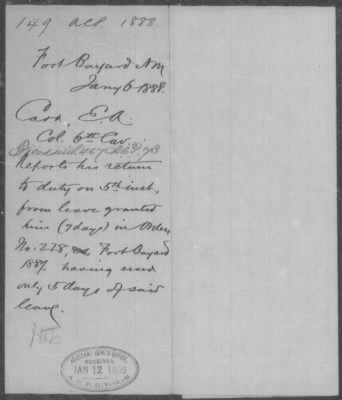 149 ACP 1888.
Fort Bayard N.M.
Jany 6 1888.
Carr, E.A.
Col. 6th Cav.
Reports his return
to duty on 5th inst.
from leave granted
him (7 days) in Orders
No. 228, Fort Bayard
1887. having used
only 5 days of said
leave.
ADJUTANT GENL'S OFFICE
RECEIVED
JAN 12 1888
A.C.P. DIVISION